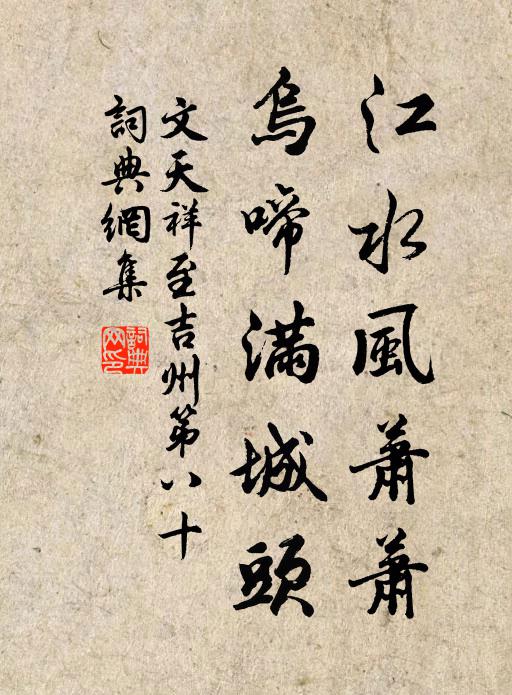 江水風蕭蕭
烏啼滿城頭
文天祥至吉州第八十
詞典網集
詞典网印